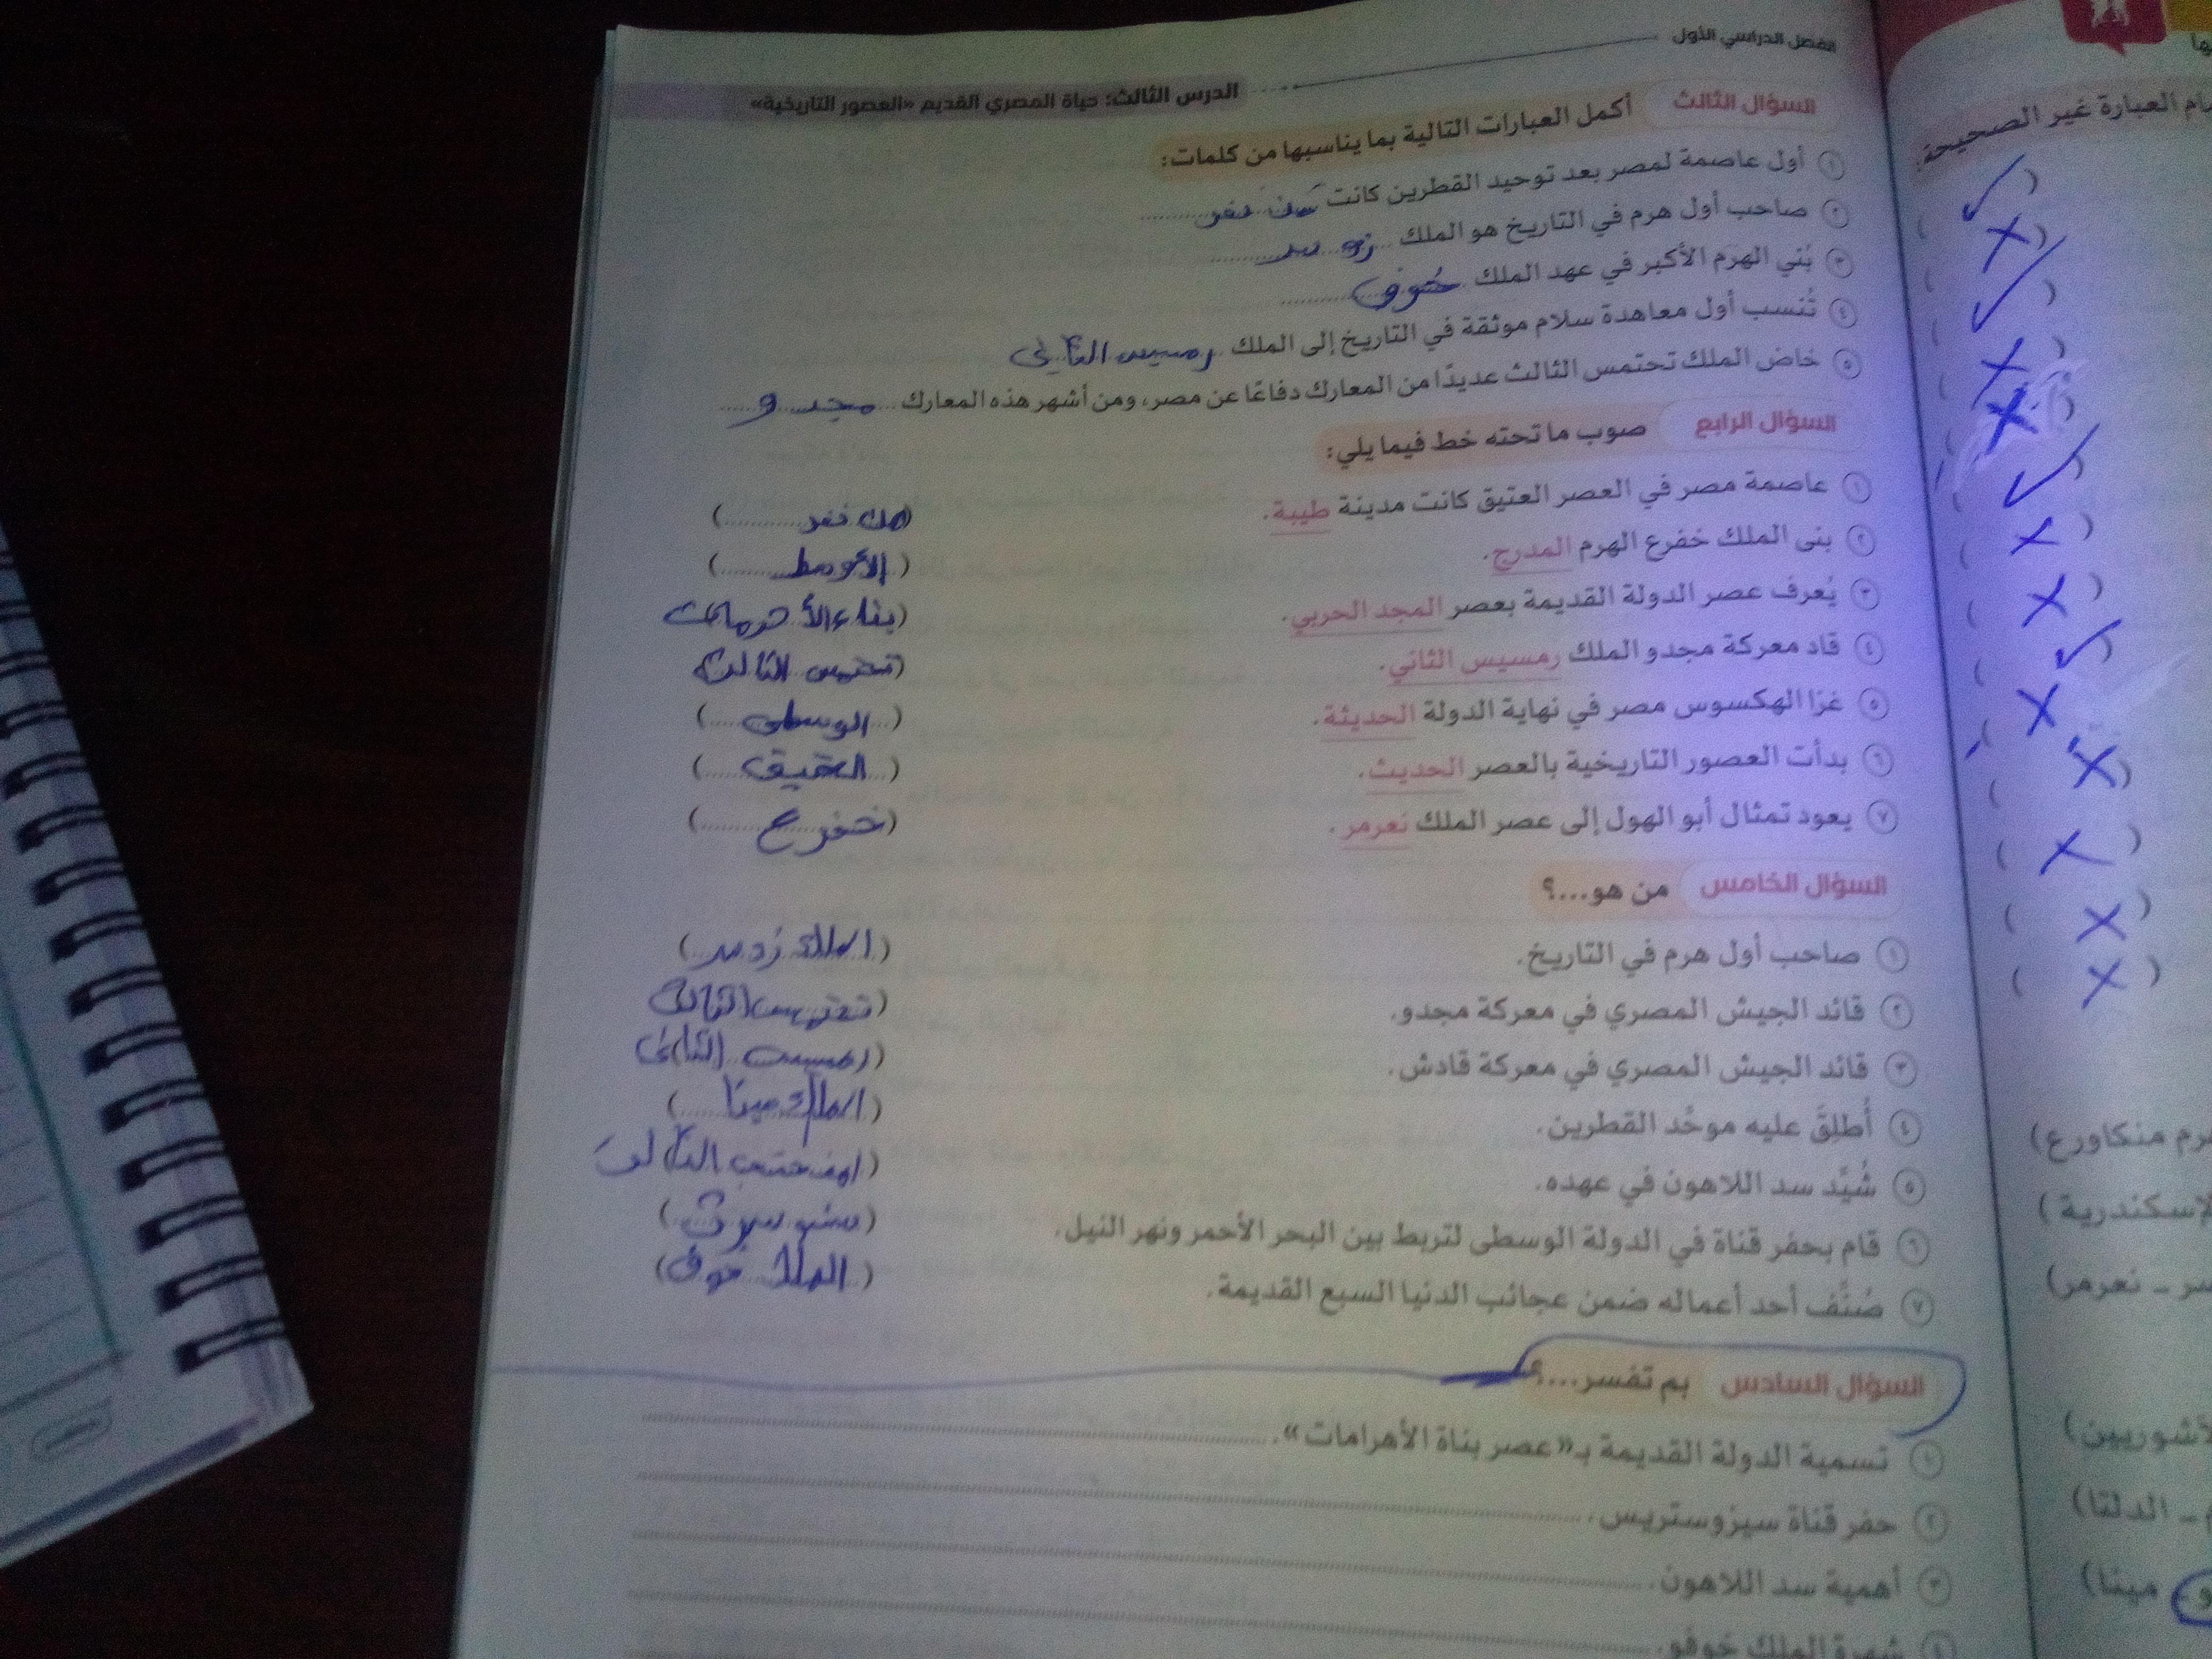 الفصل الدراسي الأول
الدرس الثالث: حياة المصري القديم «العصور التاريخية»
السؤال الثالث أكمل العبارات التالية بما يناسبها من كلمات:
١ أول عاصمة لمصر بعد توحيد القطرين كانت من نفر
٢ صاحب أول هرم في التاريخ هو الملك زوسر
٣ بُني الهرم الأكبر في عهد الملك خوفو
٤ تُنسب أول معاهدة سلام موثقة في التاريخ إلى الملك رمسيس الثاني
٥ خاض الملك تحتمس الثالث عديدًا من المعارك دفاعًا عن مصر، ومن أشهر هذه المعارك مجدو
السؤال الرابع صوب ما تحته خط فيما يلي:
١ عاصمة مصر في العصر العتيق كانت مدينة طيبة. (من نفر)
٢ بنى الملك خفرع الهرم المدرج. (الأوسط)
٣ يُعرف عصر الدولة القديمة بعصر المجد الحربي. (بناء الأهرمات)
٤ قاد معركة مجدو الملك رمسيس الثاني. (تحتمس الثالث)
٥ غزا الهكسوس مصر في نهاية الدولة الحديثة. (الوسطى)
٦ بدأت العصور التاريخية بالعصر الحديث. (العتيق)
٧ يعود تمثال أبو الهول إلى عصر الملك نعرمر. (خفرع)
السؤال الخامس من هو...؟
١ صاحب أول هرم في التاريخ. (الملك زوسر)
٢ قائد الجيش المصري في معركة مجدو. (تحتمس الثالث)
٣ قائد الجيش المصري في معركة قادش. (رمسيس الثاني)
٤ أُطلِقَ عليه موحِّد القطرين. (الملك مينا)
٥ شُيِّد سد اللاهون في عهده. (امنمحتب الثالث)
٦ قام بحفر قناة في الدولة الوسطى لتربط بين البحر الأحمر ونهر النيل. (سنوسرت)
٧ صُنِّف أحد أعماله ضمن عجائب الدنيا السبع القديمة. (الملك خوفو)
السؤال السادس بم تفسر...؟
١ تسمية الدولة القديمة بـ«عصر بناة الأهرامات».
٢ حفر قناة سيزوستريس.
٣ أهمية سد اللاهون.
٤ شهرة الملك خوفو.
العبارة غير الصحيحة:
منكاورع)
نعرمر)
الدلتا)
مينا)